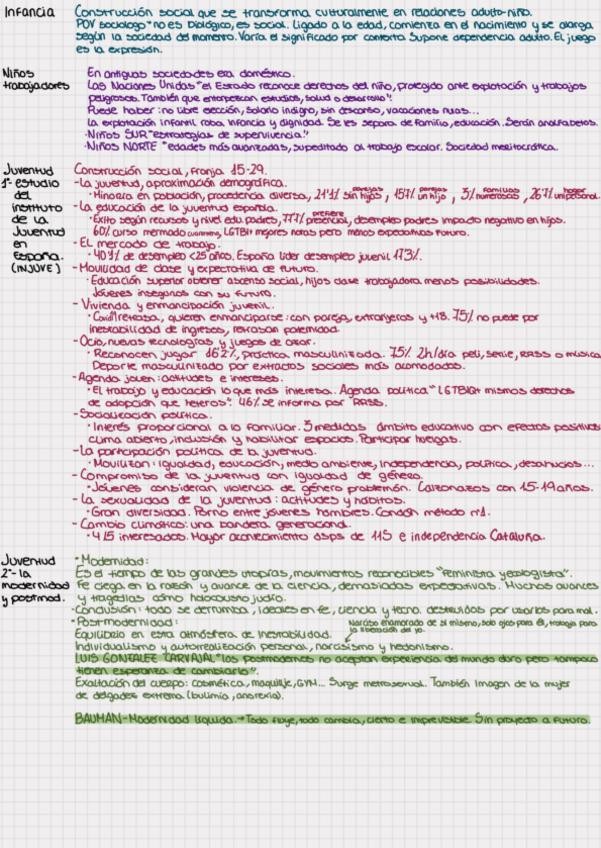 Infancia
Construcción social que se transforma culturalmente en relaciones adulto-niño.
POV sociologo "no es biológico, es social. Ligado a la edad, comienza en el nacimiento y se alarga
según la sociedad del momento. Varía el significado por contexto. Supone dependencia adulto. El juego
es la expresión.
Niños
trabajadores
En antiguas sociedades era doméstico.
Las Naciones Unidas "el Estado reconoce derechos del niño, protegido ante explotación y trabajos
peligrosos. También que entorpezcan estudios, salud o desarrollo"
Puede haber: no libre elección, salario indigno, sin descanso, vacaciones nulas...
La explotación infantil roba infancia y dignidad. Se les separa de familia, educación. Serán analfabetos.
· Niños SUR "estrategias de supervivencia."
· Niños NORTE "edades más avanzadas, supeditado al trabajo escolar. Sociedad meritocrática.
Juventud
1º- estudio
del
instituto
de la
Juventud
en
España.
(INJUVE)
Construcción social, franja 15-29.
- La juventud, aproximación demográfica.
· Minoría en población, procedencia diversa, 21'1% parejas sin hijos, 15'7% parejas un hijo, 3% familias numerosas, 26'7% hogar unipersonal.
- La educación de la juventud española.
· Éxito según recursos y nivel edu padres, 77'7% prefiere presencial, desempleo padres impacto negativo en hijos.
60% curso mermado, LGTBI+ mejores notas pero menos expectativas futuro.
- EL mercado de trabajo.
· 40'9% de desempleo <25 años. España líder desempleo juvenil 17'3%.
- Movilidad de clase y expectativa de futuro.
· Educación superior obtener ascenso social, hijos clase trabajadora menos posibilidades.
Jóvenes inseguros con su futuro.
- Vivienda y emancipación juvenil.
· Covid19 retrasa, quieren enmanciparse: con pareja, extranjeros y +18. 75% no puede por
inestabilidad de ingresos, retrasan paternidad.
- Ocio, nuevas tecnologías y juegos de azar.
· Reconocen jugar 16'2%, práctica masculinizada. 75% 2h/día peli, serie, RRSS o música
Deporte masculinizado por extractos sociales más acomodados.
- Agenda joven: actitudes e intereses.
· El trabajo y educación lo que más interesa. Agenda política "LGTBIQ+ mismos derechos
de adopción que heteros". 46% se informa por RRSS.
- Socialización política.
· Interés proporcional a lo familiar. 3 medidas ámbito educativo con efectos positivos
clima abierto, inclusión y habilitar espacios. Participar huelgas.
- La participación política de la juventud.
· Movilizan: igualdad, educación, medio ambiente, independencia, política, desahucios...
- Compromiso de la juventud con igualdad de género.
· Jóvenes consideran violencia de género problemón. Calzonazos con 15-19 años.
- La sexualidad de la juventud: actitudes y hábitos.
· Gran diversidad. Porno entre jóvenes hombres. Condón método nº1.
- Cambio climático: una bandera generacional.
· 4'15 interesados. Mayor acontecimiento dsps de 11S e independencia Cataluña.
Juventud
2º- la
modernidad
y postmod.
· Modernidad:
Es el tiempo de las grandes utopías, movimientos reconocibles "feminista y ecologista".
Fe ciega en la razón y avance de la ciencia, demasiadas expectativas. Muchos avances
y tragedias como holocausto judío.
· Conclusión: todo se derrumba, ideales en fe, ciencia y tecno. destruidos por usarlos para mal.
· Postmodernidad:
Narciso enamorado de si mismo, solo ojos para él, trabaja para
la liberación del yo.
Equilibrio en esta atmósfera de inestabilidad.
Individualismo y autorrealización personal, narcisismo y hedonismo.
LUIS GONZALEZ "CARVAJAL" los postmodernos no aceptan experiencia del mundo duro pero tampoco
tienen esperanza de cambiarlo".
Exaltación del cuerpo: cosmética, maquillje, GYM... Surge metrosexual. También imagen de la mujer
de delgadez extrema (bulimia, anorexia).
BAUMAN-Modernidad líquida.→Todo fluye, todo cambia, cierto e imprevisible. Sin proyecto a futuro.